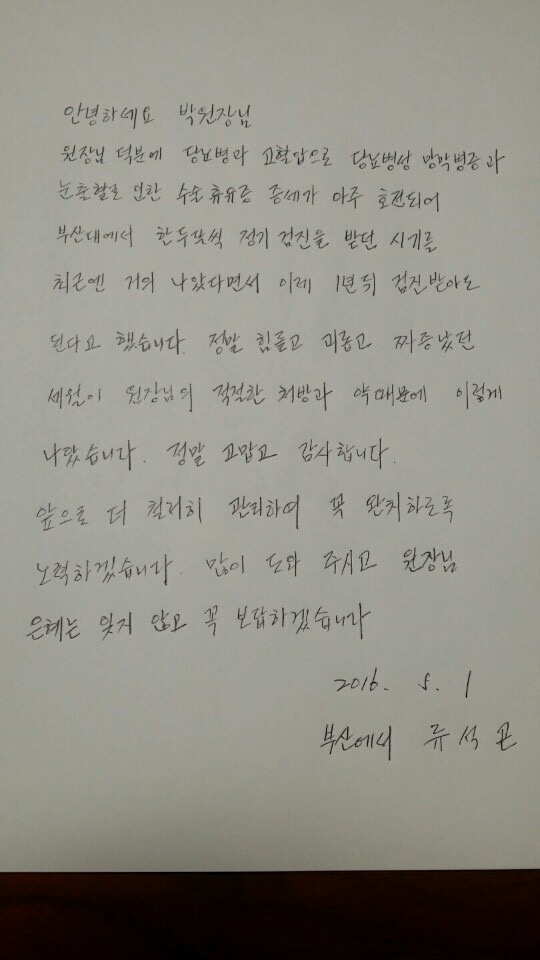 안녕하세요 박원장님
원장님 덕분에 당뇨병과 고혈압으로 당뇨병성 망막병증과
눈출혈로 인한 수술휴유증 증세가 아주 호전되어
부산대에서 한두달씩 정기 검진을 받던 시기를
최근엔 거의 나았다면서 이제 1년뒤 검진받아도
된다고 했습니다. 정말 힘들고 괴롭고 짜증났던
세월이 원장님의 적절한 처방과 약때문에 이렇게
나았습니다. 정말 고맙고 감사합니다.
앞으로 더 철저히 관리하여 꼭 완치하도록
노력하겠습니다. 많이 도와 주시고 원장님
은혜는 잊지 않고 꼭 보답하겠습니다
2016. 5. 1
부산에서 류석